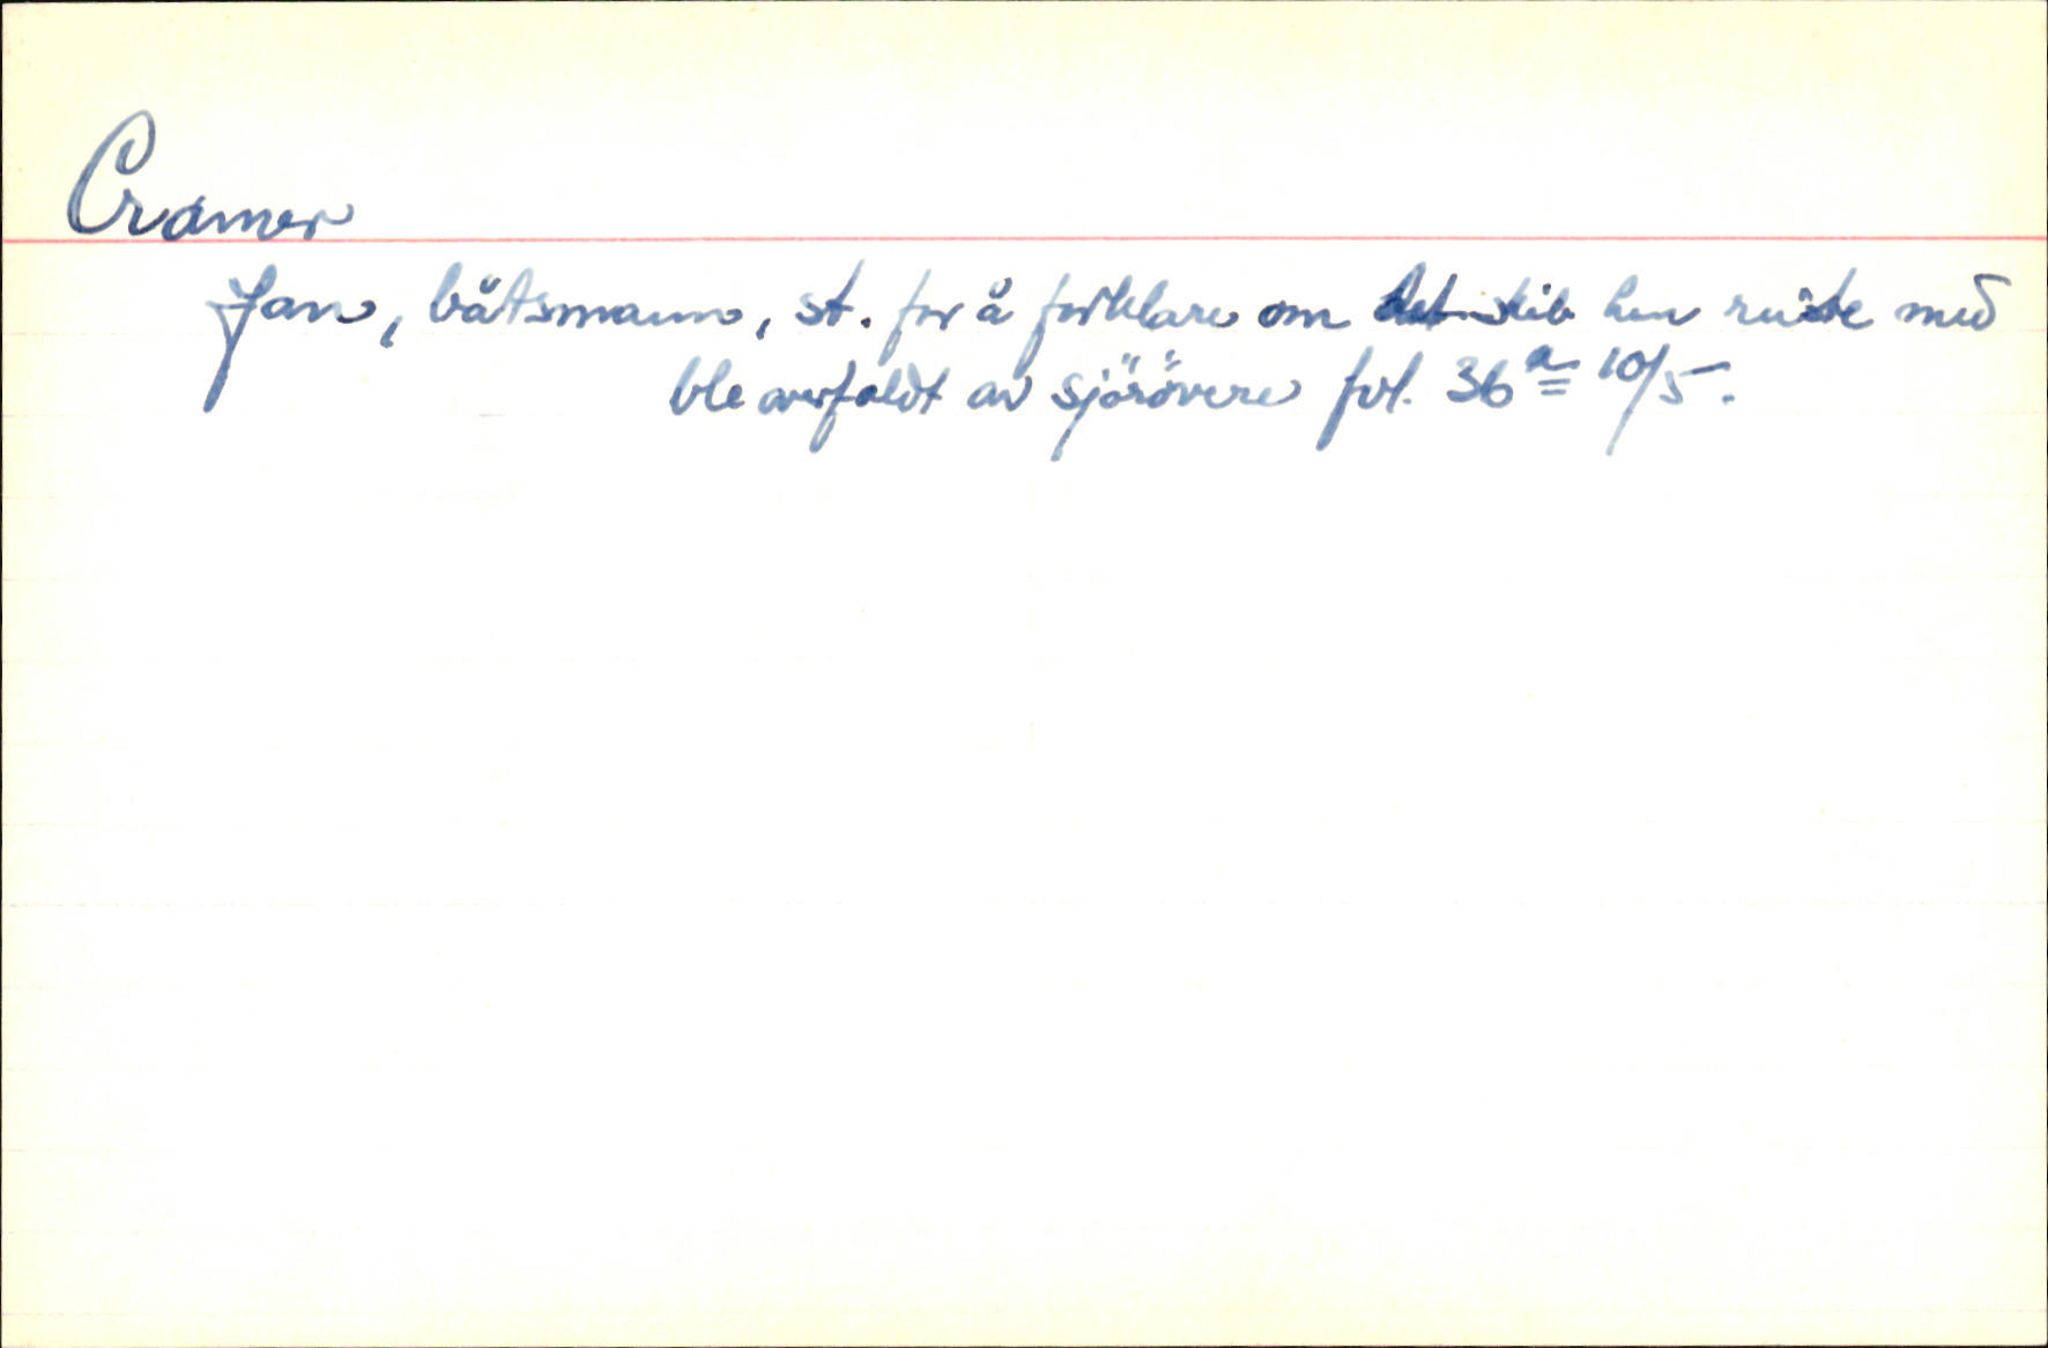 Cramer
Jan, båtsmann, st. for å forklare om det skib han reiste med
ble overfaldt av sjörövere fol. 36a 10/5.